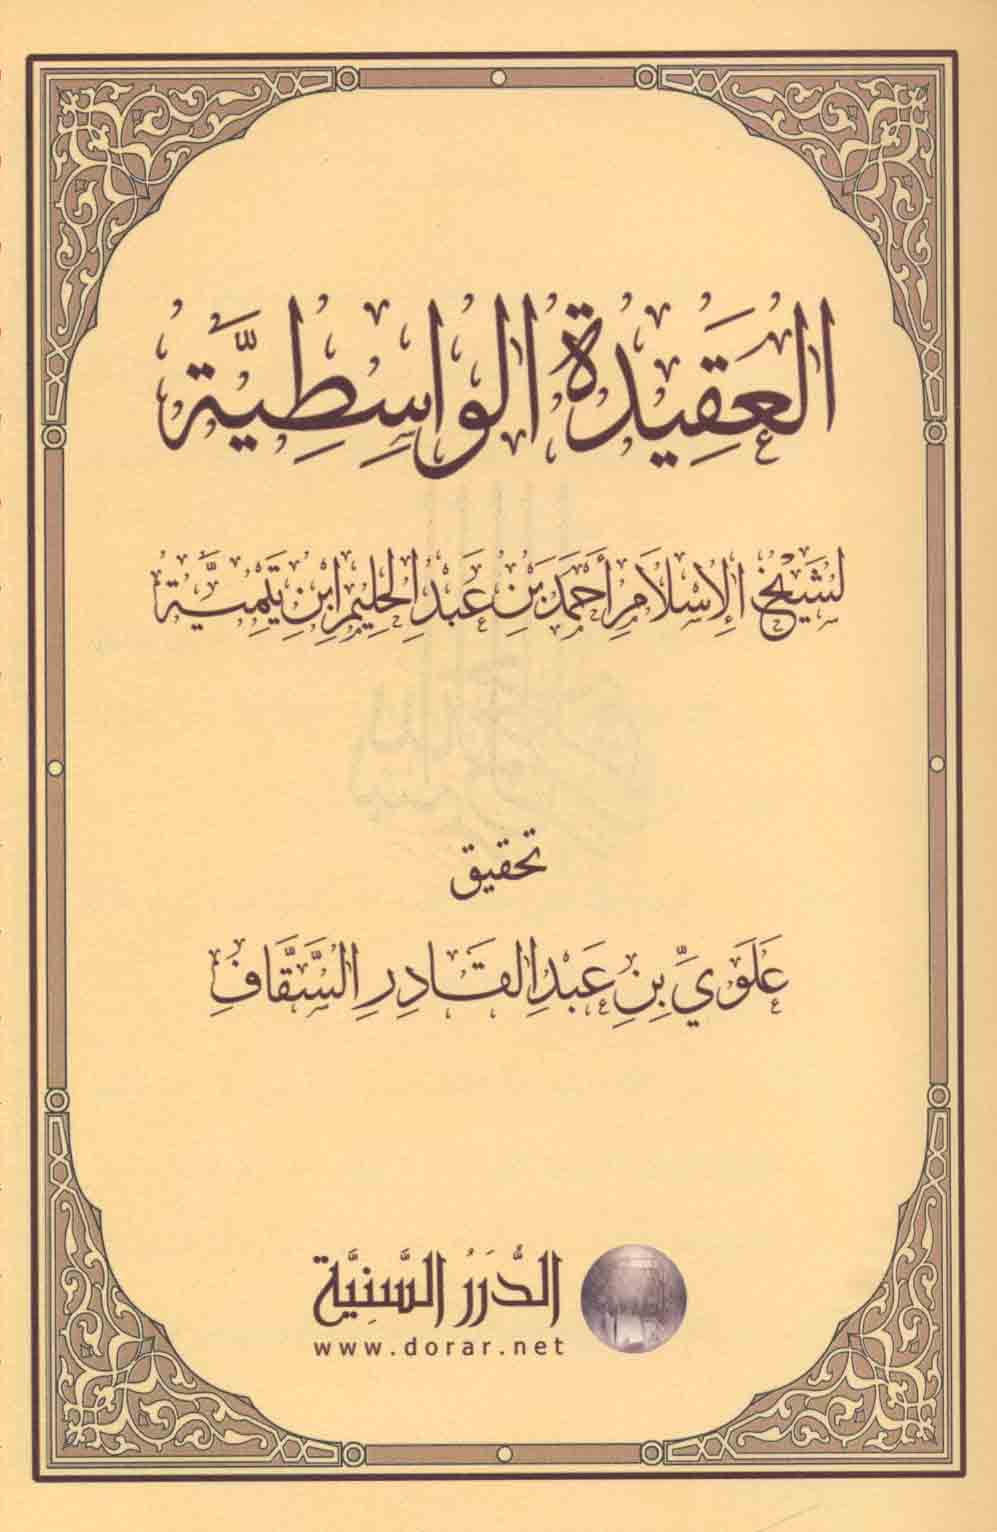 العَقِيدة الواسِطِيَّة
لشَيْخ الإسْلَامِ أحمَدَ بْنِ عَبْدِ الحَلِيمِ ابْنِ تَيْمِيَّة
تحقيق
عَلَوِيِّ بنِ عَبْدِ القَادِرِ السَّقَّافِ
الدُّرَرُ السَّنِيَّة
www.dorar.net